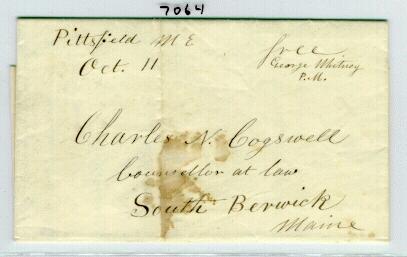 7064
Pittsfield M E
Oct. 11
free
George Whitney
P.M.
Charles N. Cogswell
Counsellor at law
South Berwick
Maine